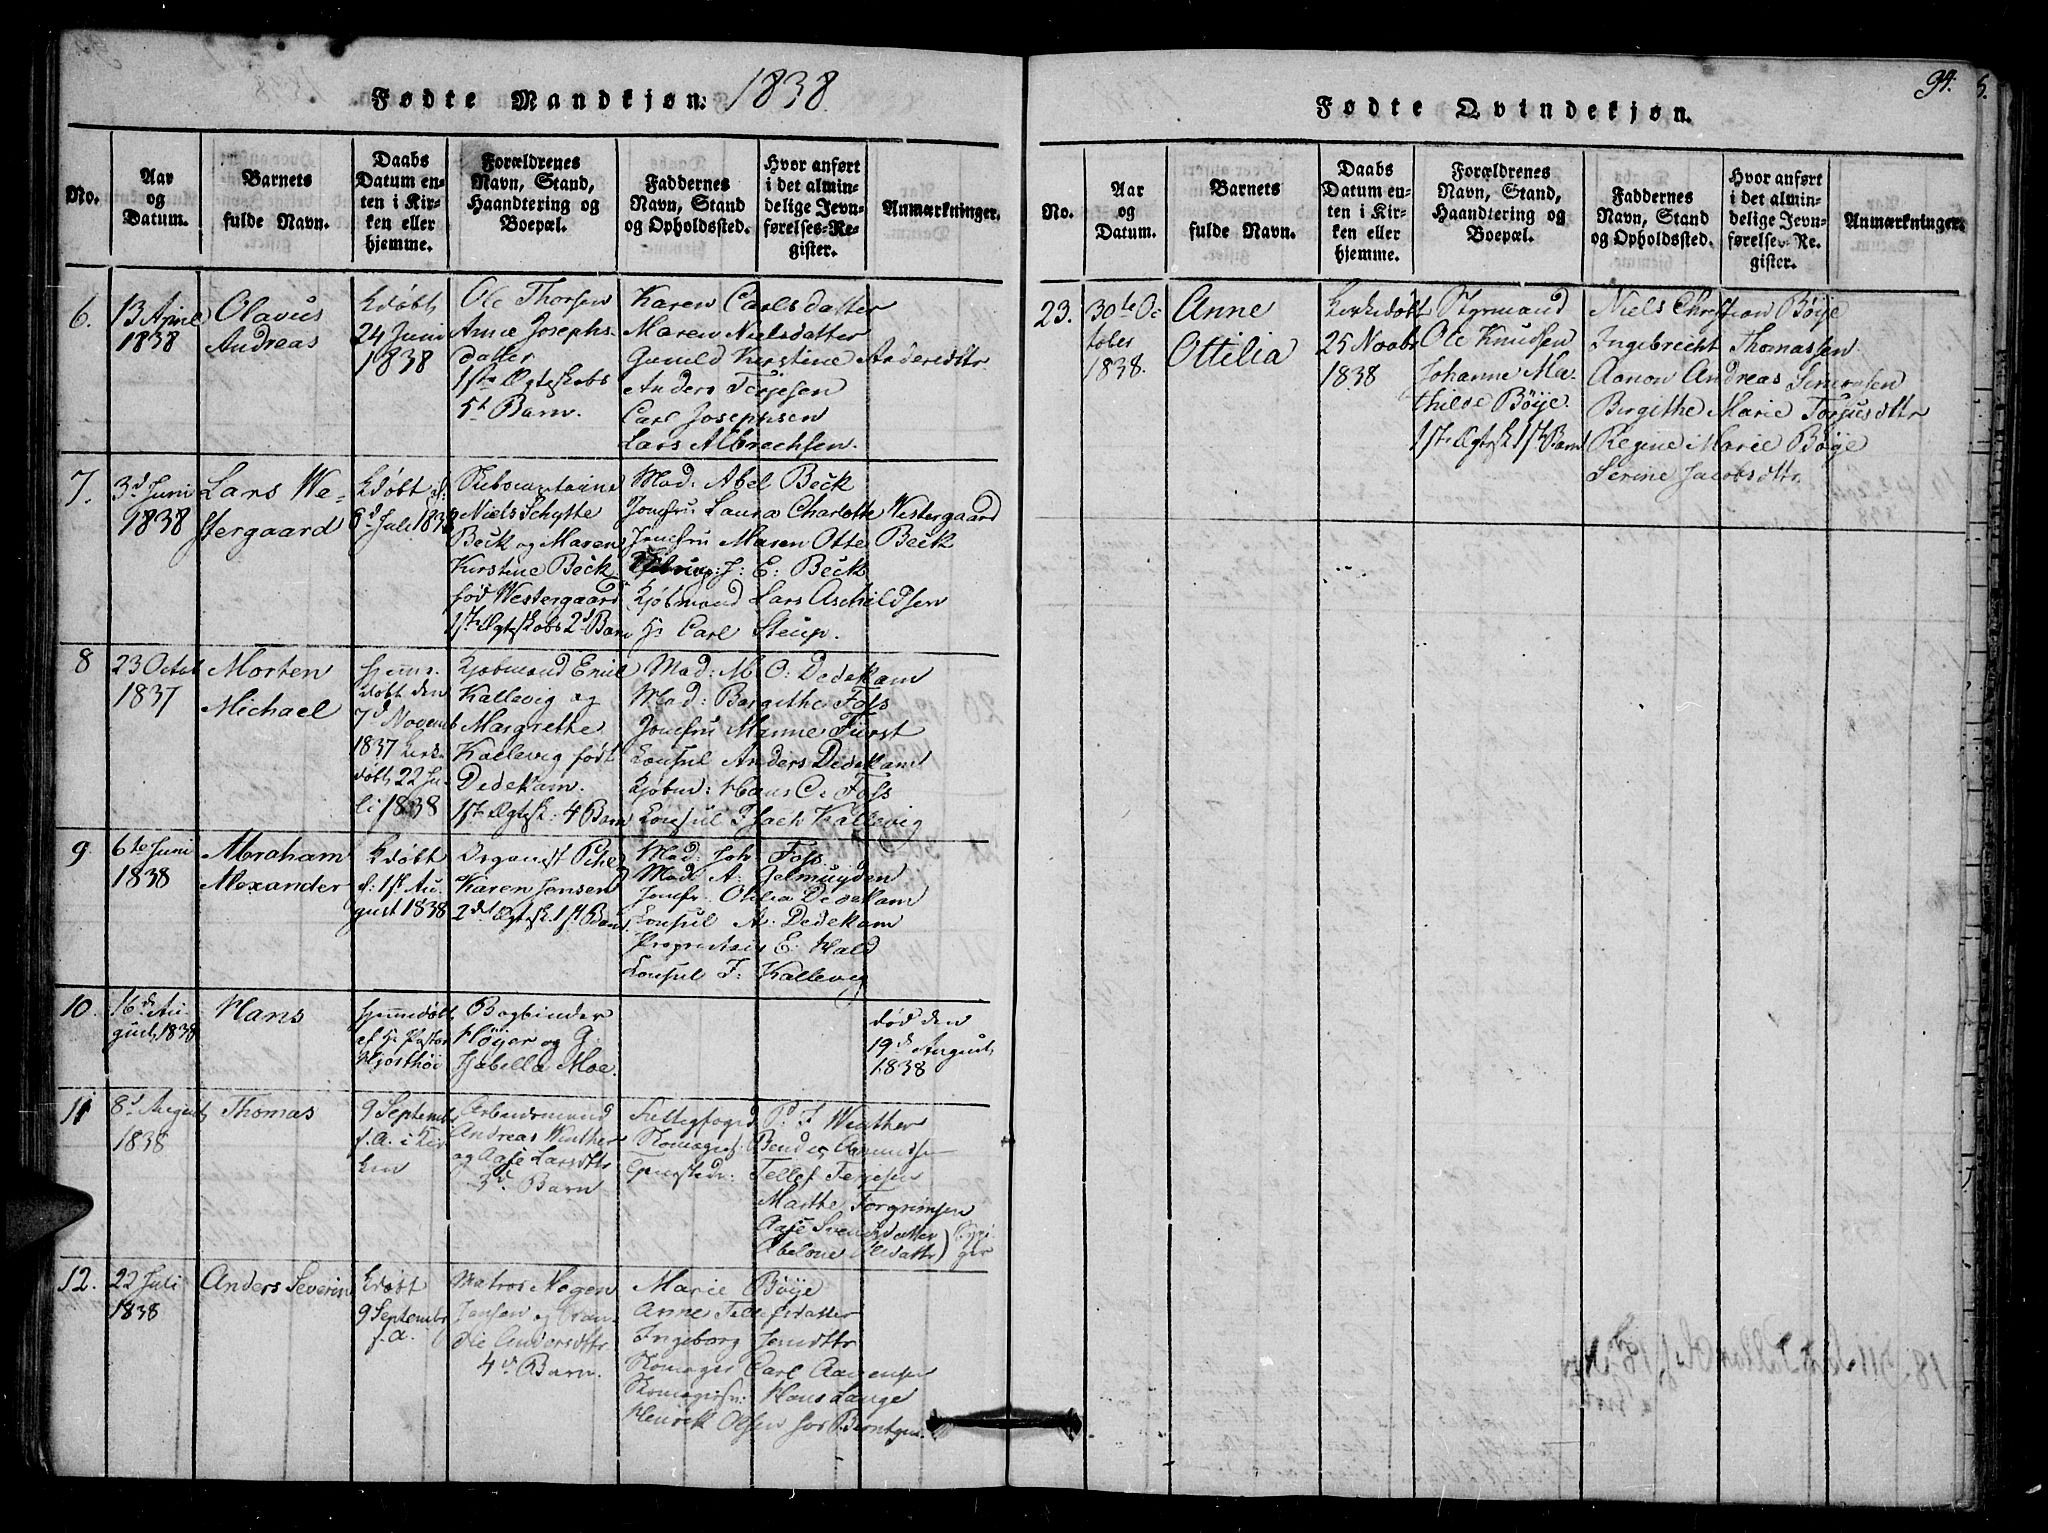 Fødte Mandkjøn. 1838.
No.
Aar
og
Datum.
Barnets
fulde Navn.
Daabs
Datum en-
ten i Kir-
ken eller
hjemme.
Forældrenes
Navn, Stand,
Haandtering og
Boepæl.
Faddernes
Navn, Stand
og Opholdssted.
Hvor anført
i det almin-
delige Jevn-
førelses-Re-
gister.
Anmærkninger.
6.
13 April
1838
Olavus
Andreas
Kdøbt
24 Juni
1838
Ole Thorsen
Anne Josephs-
datter
1ste Ægteskabs
5t Barn.
Karen Carlsdatter
Maren Nielsdatter
Gunild Kirstine Andersdtr
Anders Terjesen
Carl Josephsen
Lars Albrechsen.
7.
3d Juni
1838
Lars We-
stergaard
Kdøbt d:
8d Juli 1838
Niels Schytte
Beck og Maren
Kirstine Beck
fød Westergaard
1ste Ægteskabs 2d Barn
Mad: Abel Beck
Jomfru Laura Charlotte Westergaard
Jomfru Maren Otte Beck
J: E: Beck
Kjøbmand Lars Aschildsen
Hr Carl Steup.
8
23 Octob
1837
Morten
Michael
Hjemme-
døbt den
7d Novemb
1837 Kirke-
døbt 22 Ju-
li 1838
Kjøbmand Emil
Kallevig og
Margrethe
Kallevig født
Dedekam.
1ste Ægtesk: 4 Barn
Mad: M. O: Dedekam
Mad: Borgithe Foss
Jomfru Manne Fürst
Consul Anders Dedekam
Kjøbm: Hans C: Foss
Consul Isach Kallevig
9.
6te Juni
1838
Abraham
Alexander
Kdøbt
d: 1st Au-
gust 1838
Organist Pihl
Karen Jensen
2det Ægtesk. 1st Barn
Mad: Joh: Foss.
Mad: A. Jelmuyden
Jomfr. Otilia Dedekam
Consul A. Dedekam
Proprietair E. Hald
Consul I: Kallevig
10.
16de Au-
gust 1838
Hans
Hjemmedøbt
af Hr Pastor
Hjorthöi
Bogbinder
Høyer og G.
Isabella Moe.
død den
19de August
1838
11
8d August
1838
Thomas
9 Septemb
s.A. i Kir
ken
Arbeidsmand
Andreas Winther
og Aase Larsdttr
3d Barn
Fattigfoged P. F. Winther
Skomagers: Bendix Asmunds-
Tellef Terjesen
Marthe Torgrimsen
Aase Svendsdatter
Abelone Olsdattr
) Pi-
ger
12.
22 Juli
1838
Anders Severin
Kdøbt
9 Septembr
s.A.
Matros Mogen
Jansen og
die Andersdttr
4d Barn.
Marie Bøye
Anne Tellefsdatter
Ingeborg Jensdttr
Skomager Carl Aanensen
Skomagersv: Hans Lange
Henrik Olsen
94.
5.
Fødte Qvindekjøn.
No.
Aar
og
Datum.
Barnets
fulde Navn.
Daabs
Datum en-
ten i Kir-
ken eller
hjemme.
Forældrenes
Navn, Stand,
Haandtering og
Boepæl.
Faddernes
Navn, Stand
og Opholdssted.
Hvor anført
i det almin-
delige Jevn-
førelses-Re-
gister.
Anmærkninger.
23.
30te Oc
tober
1838.
Anne
Ottilia
Kirkedøbt
25 Novbr
1838
Styrmand
Ole Knudsen
Johanne Ma-
thilde Bøye.
1ste Ægtesk 1st Barn
Niels Christian Bøye
Ingebrecht Thomassen
Aanon Andreas Simonsen
Birgithe Marie Torjusdttr
Regine Marie Bøye
Serine Jacobsdttr